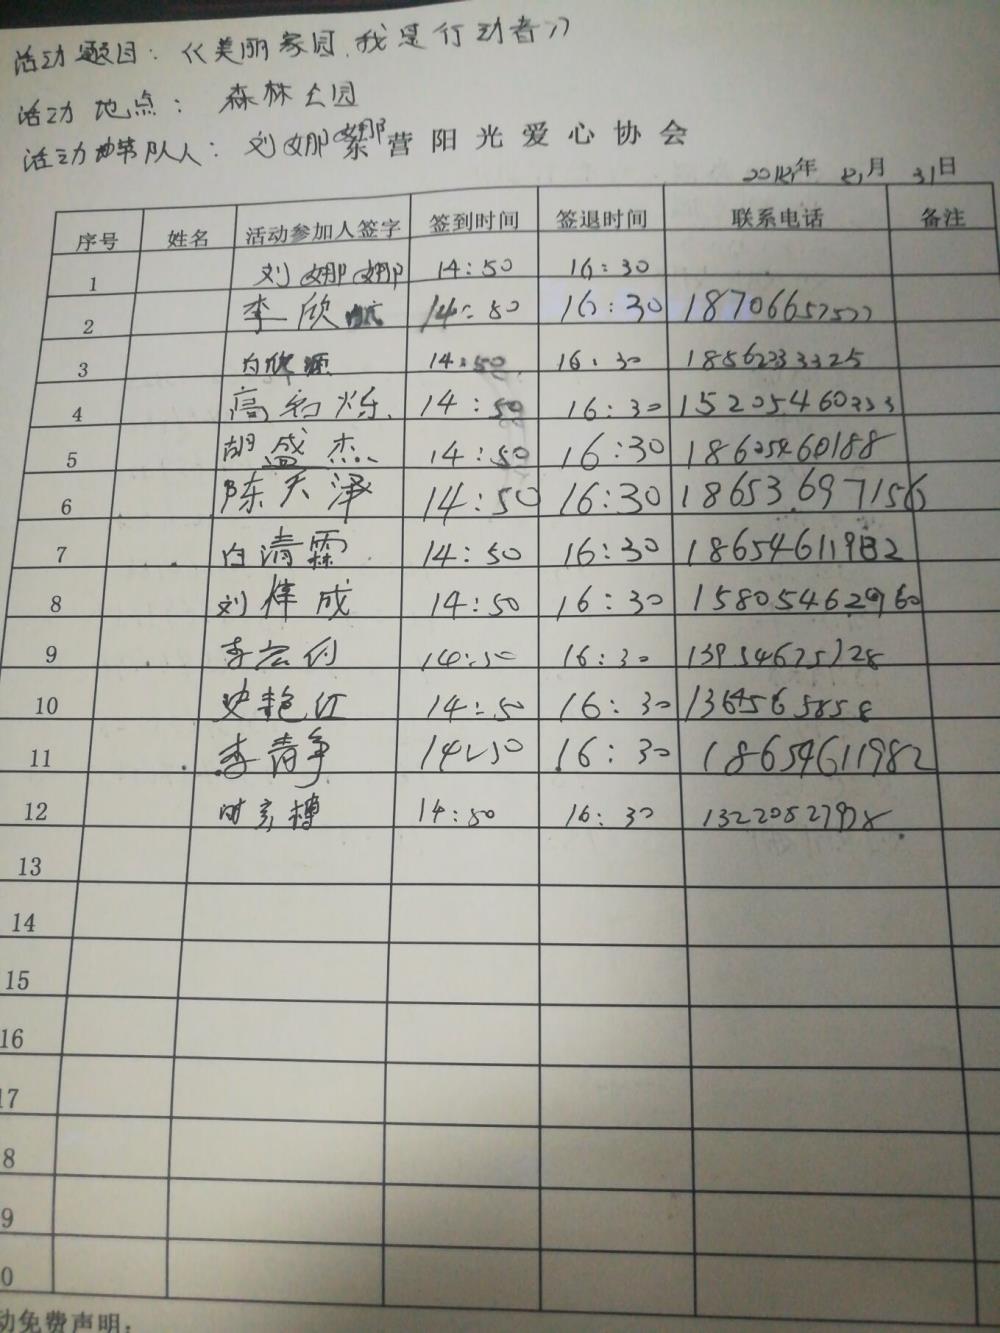 活动题目：《美丽家园,我是行动者》
活动地点：森林公园
活动带队人：刘娜娜
东营阳光爱心协会
年 月 31日
序号 姓名 活动参加人签字 签到时间 签退时间 联系电话 备注
1 刘娜娜 14:50 16:30
2 李欣 14:50 16:30
3 14:50 16:30 18562333325
4 高 烁 14:50 16:30 15205460333
5 胡盛杰 14:50 16:30 18605460188
6 陈天泽 14:50 16:30 18653697156
7 白清霖 14:50 16:30
8 刘倖成 14:50 16:30 15805462960
9 李宏利 14:50 16:30
10 史艳红 14:50 16:30 13645655858
11 李青争 14:50 16:30 18654611982
12 时彦樽 14:50 16:30
13
14
15
16
17
8
9
0
动免费声明：